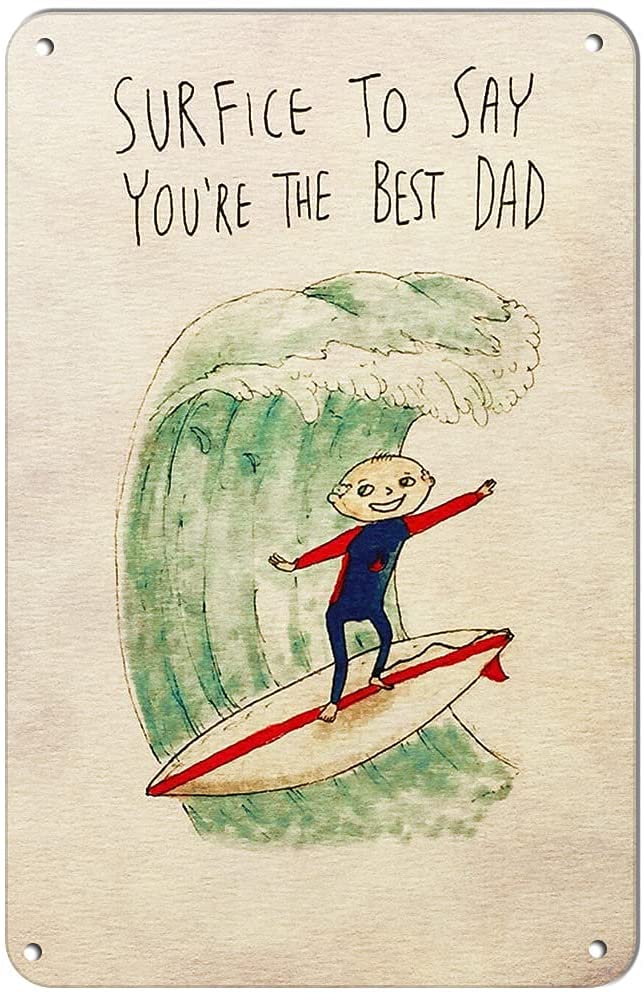 SURFICE TO SAY
YOU'RE THE BEST DAD